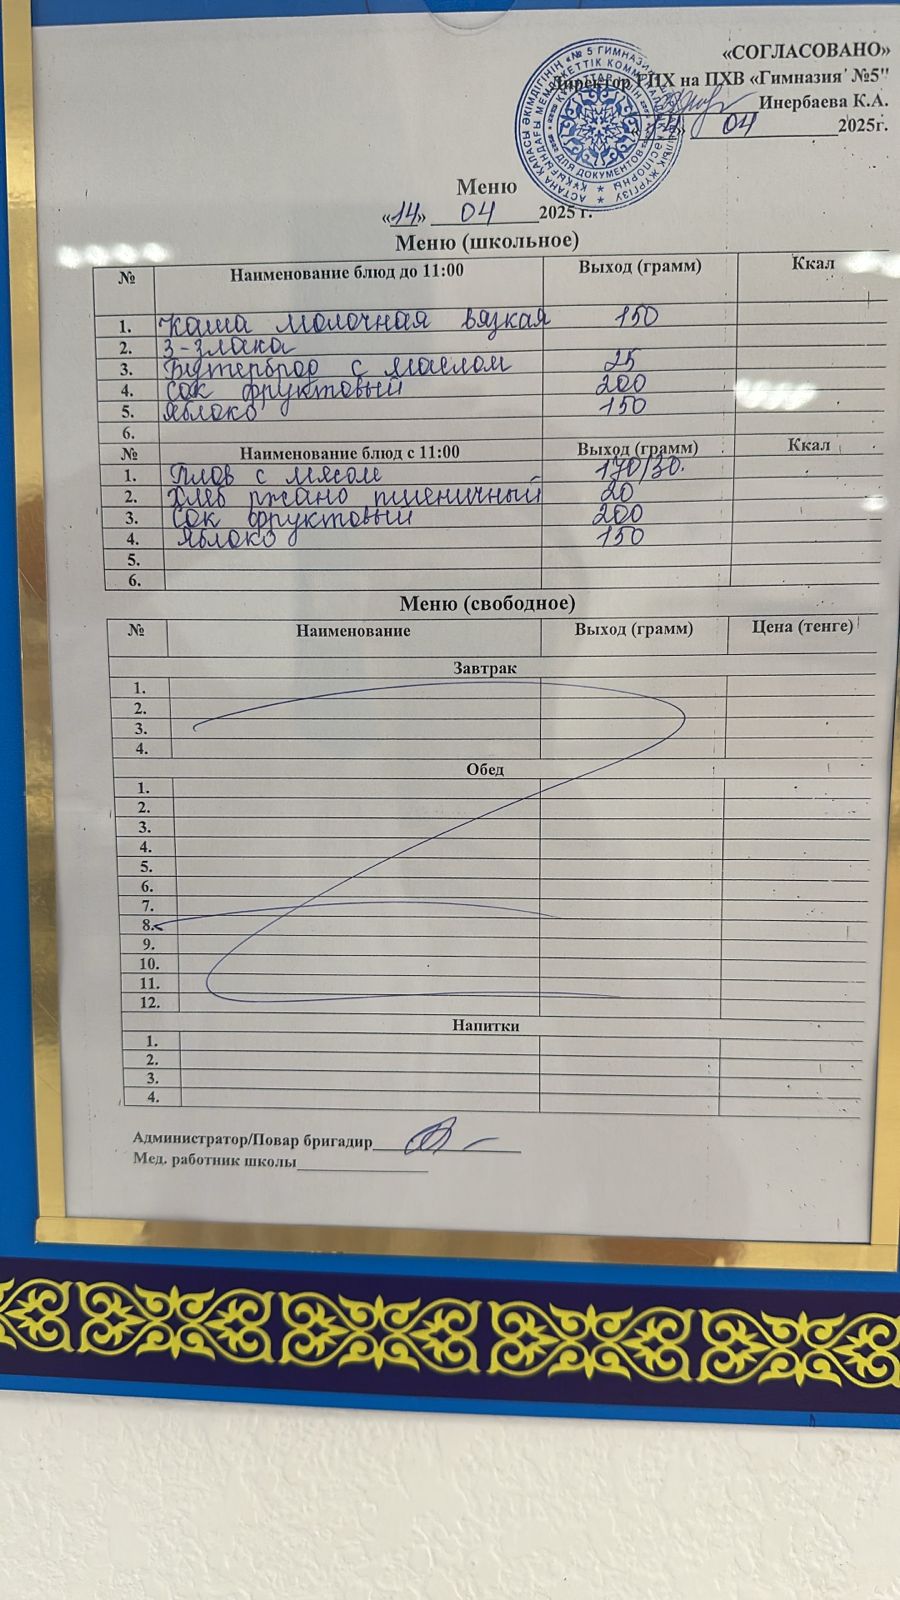 «СОГЛАСОВАНО»
Директор ГПХ на ПХВ «Гимназия №5"
Инербаева К.А.
«14» 04 2025г.
Меню
«14» 04 2025 г.
Меню (школьное)
№ Наименование блюд до 11:00 Выход (грамм) Ккал
1. Каша молочная вязкая 150
2. 3-злака
3. Бутерброд с маслом 25
4. Сок фруктовый 200
5. Яблоко 150
6.
№ Наименование блюд с 11:00 Выход (грамм) Ккал
1. Плов с мясом 170/30.
2. Хлеб ржано пшеничный 20
3. Сок фруктовый 200
4. Яблоко 150
5.
6.
Меню (свободное)
№ Наименование Выход (грамм) Цена (тенге)
Завтрак
1.
2.
3.
4.
Обед
1.
2.
3.
4.
5.
6.
7.
8.
9.
10.
11.
12.
Напитки
1.
2.
3.
4.
Администратор/Повар бригадир
Мед. работник школы